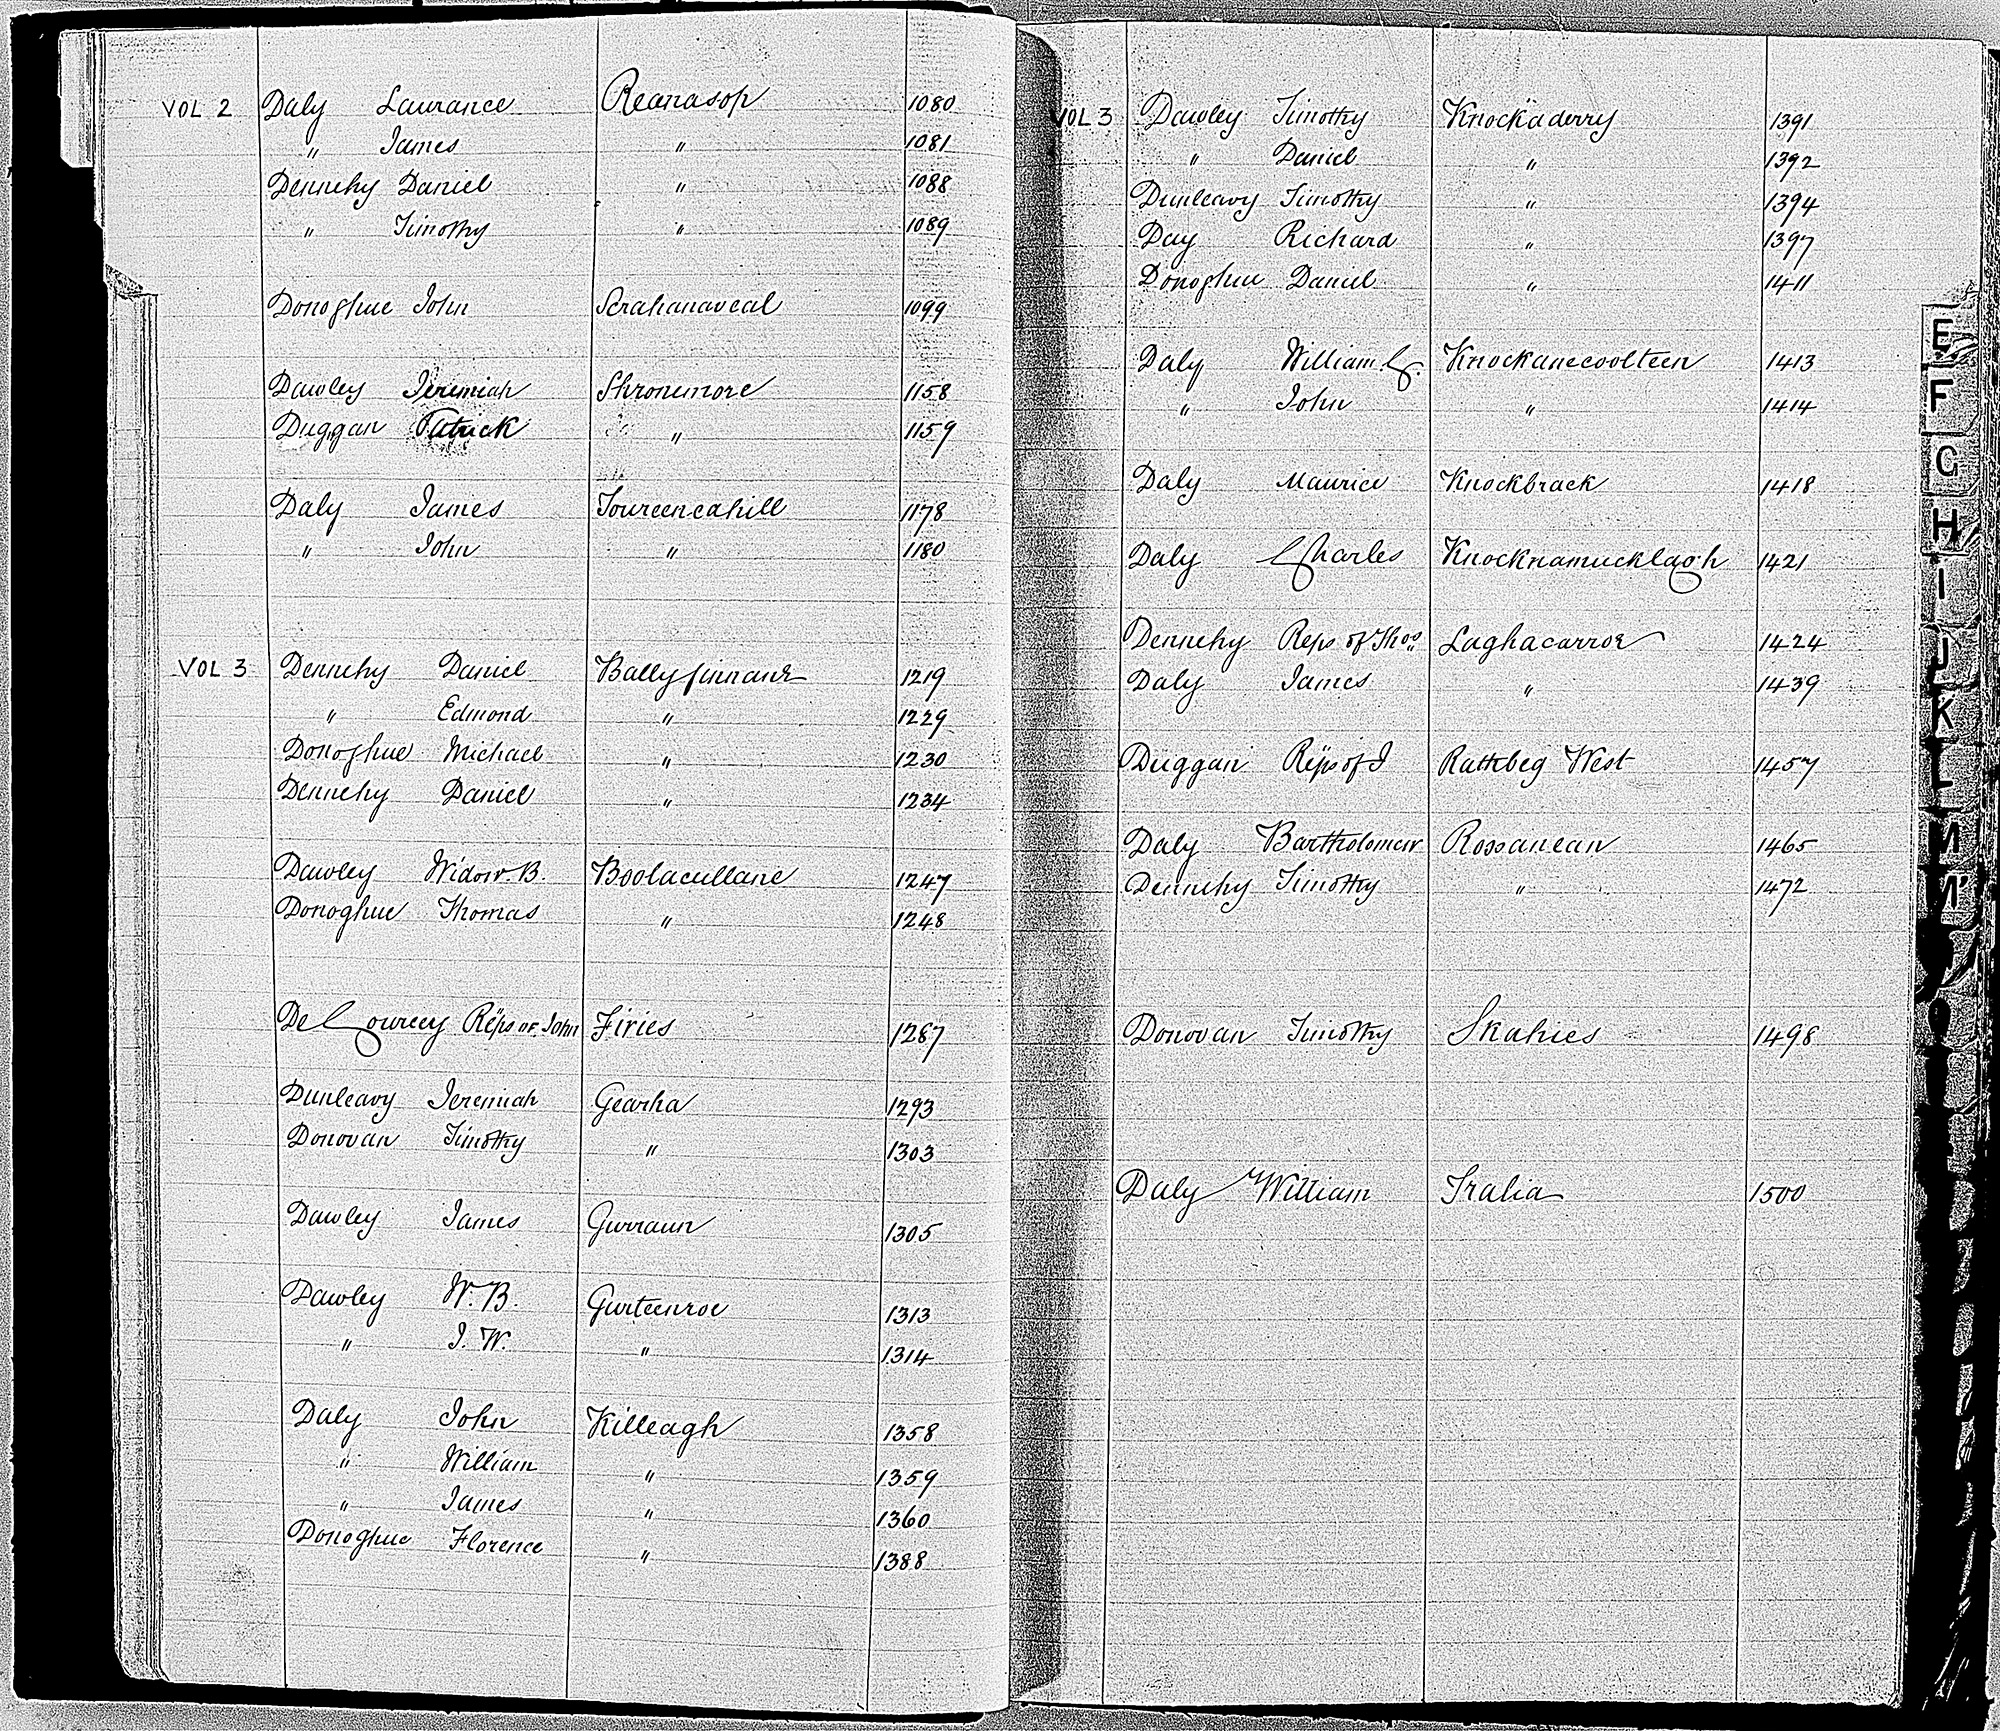 VOL 2 Daly Laurance Reanasop 1080
" James " 1081
Dennehy Daniel " 1088
" Timothy " 1089
Donoghue John Scrahanaveal 1099
Dawley Jeremiah Shronemore 1158
Duggan Patrick " 1159
Daly James Toureencahill 1178
" John " 1180
VOL 3 Dennehy Daniel Ballyfinnane 1219
" Edmond " 1229
Donoghue Michael " 1230
Dennehy Daniel " 1234
Dawley Widow. B. Boolacullane 1247
Donoghue Thomas " 1248
De Courcey Reps of John Firies 1287
Dunleavy Jeremiah Gearha 1293
Donovan Timothy " 1303
Dawley James Gurraun 1305
Dawley W. B. Gurteenroe 1313
" J. W. " 1314
Daly John Killeagh 1358
" William " 1359
" James " 1360
Donoghue Florence " 1388
VOL 3 Dawley Timothy Knockaderry 1391
" Daniel " 1392
Dunleavy Timothy " 1394
Day Richard " 1397
Donoghue Daniel " 1411
Daly William. C. Knockanecoolteen 1413
" John " 1414
Daly Maurice Knockbrack 1418
Daly Charles Knocknamucklagh 1421
Dennehy Reps of Thos Laghacarroe 1424
Daly James " 1439
Duggan Reps of J Rathbeg West 1457
Daly Bartholomew Rossanean 1465
Dennehy Timothy " 1472
Donovan Timothy Skahies 1498
Daly William Tralia 1500
E
F
G
H
I
J
K
L
M
M'